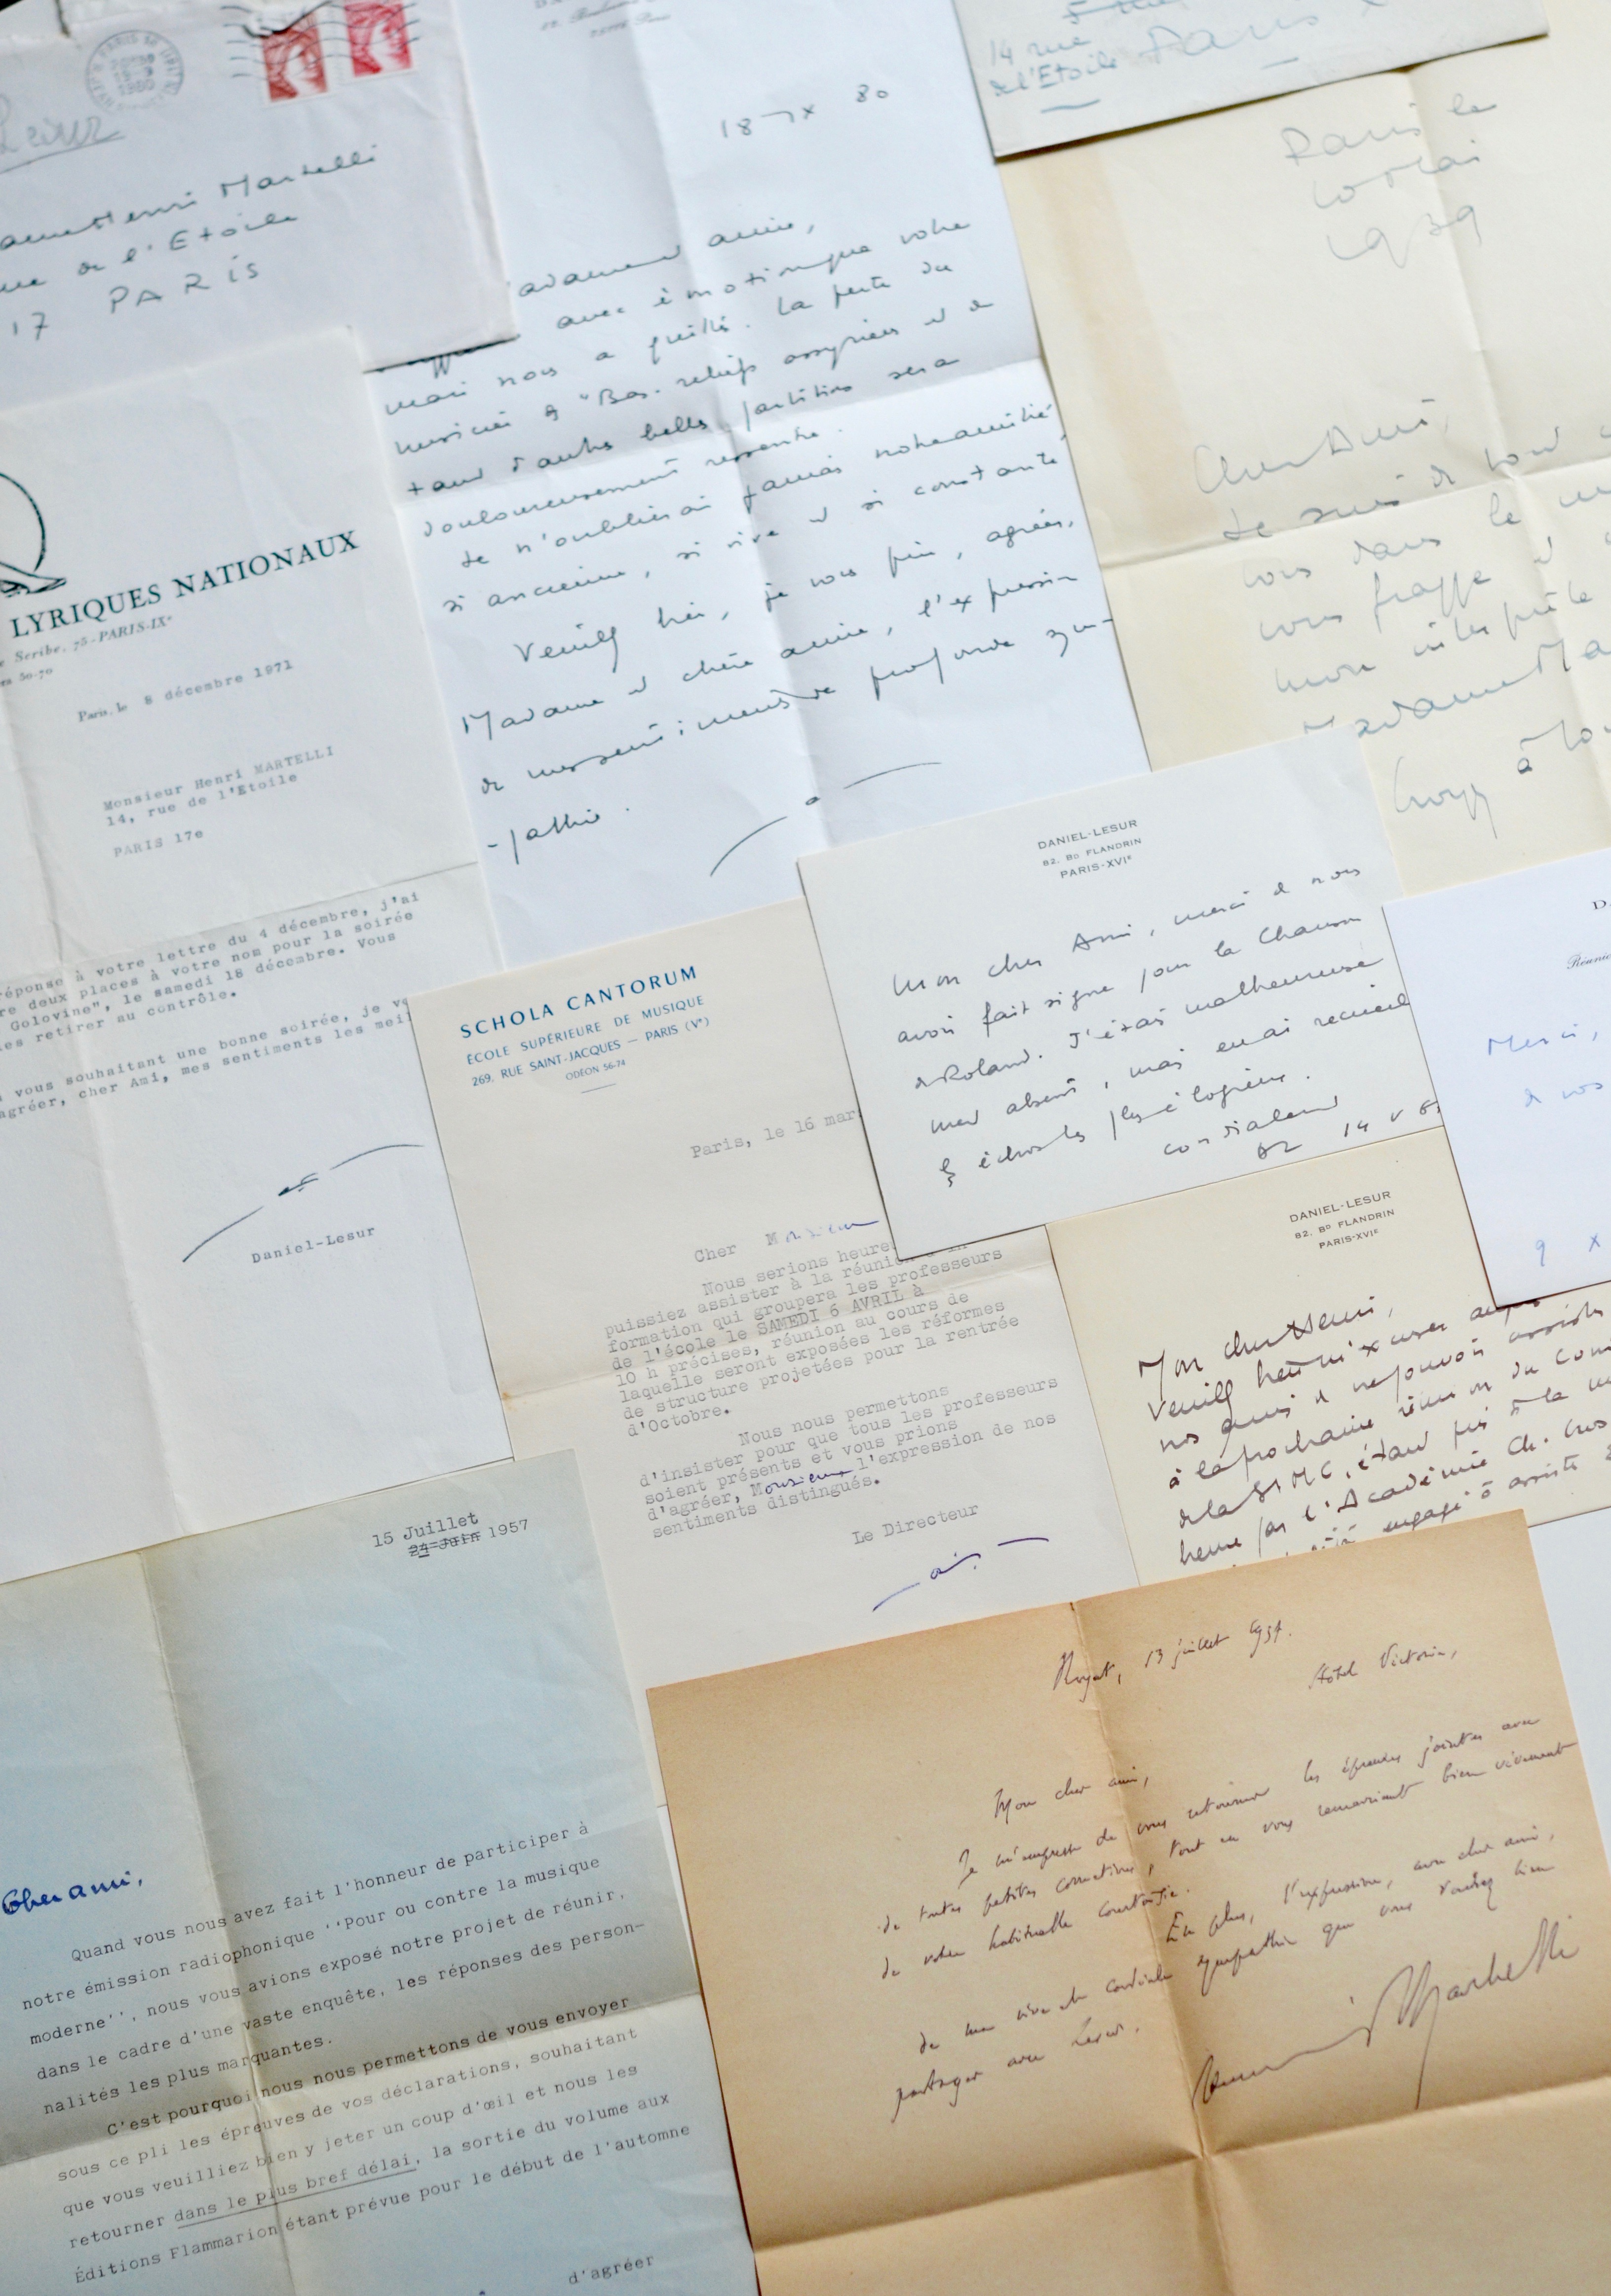 PARIS
1980
Lesur
Henri Martelli
de l'Etoile
17 PARIS
18 IX 80
amie,
avec émotion que votre
mari nous a quittés. La perte du
musicien des "Bas-reliefs assyriens et de
tant d'autres belles partitions sera
douloureusement ressentie.
Je n'oublierai jamais notre amitié
si ancienne, si vive et si constante,
Veuillez bien, je vous prie, agréer,
Madame et chère amie, l'expression
de mes sentiments de profonde sym-
-pathie.
14 rue
de l'Etoile Paris
Paris le
1939
Cher Ami,
Je suis de tout
vous dans le
vous frappe et
mon
Madame Ma
Croyez à
LYRIQUES NATIONAUX
Scribe, 75-PARIS-IXe
50-70
Paris, le 8 décembre 1971
Monsieur Henri MARTELLI
14, rue de l'Etoile
PARIS 17e
réponse à votre lettre du 4 décembre, j'ai
deux places à votre nom pour la soirée
Golovine", le samedi 18 décembre. Vous
les retirer au contrôle.
vous souhaitant une bonne soirée, je
agréer, cher Ami, mes sentiments les
Daniel-Lesur
SCHOLA CANTORUM
ÉCOLE SUPÉRIEURE DE MUSIQUE
269, RUE SAINT-JACQUES — PARIS (Ve)
ODÉON 56-74
Paris, le 16
Cher Monsieur
Nous serions
puissiez assister à la réunion
formation qui groupera les professeurs
de l'école le SAMEDI 6 AVRIL à
10 h précises, réunion au cours de
laquelle seront exposées les réformes
de structure projetées pour la rentrée
d'Octobre.
Nous nous permettons
d'insister pour que tous les professeurs
soient présents et vous prions
d'agréer, Monsieur l'expression de nos
sentiments distingués.
Le Directeur
DANIEL-LESUR
82, BD FLANDRIN
PARIS-XVIe
Mon cher Ami, merci de nous
avoir fait signe pour la Chanson
de Roland. J'étais malheureuse
ment absent, mais en ai recueilli
des échos les plus élogieux.
cordialement
DL 14 V
Merci,
de vos
9 X
DANIEL-LESUR
82, BD FLANDRIN
PARIS-XVIe
Mon cher Henri,
Veuillez bien m'excuser auprès
nos amis de ne pouvoir assister
à la prochaine réunion du
de la SIMC, étant pris à la
heure par l'Académie Ch. Cros
engagé à assister
15 Juillet
24 Juin 1957
Cher ami,
Quand vous nous avez fait l'honneur de participer à
notre émission radiophonique ''Pour ou contre la musique
moderne'', nous vous avions exposé notre projet de réunir,
dans le cadre d'une vaste enquête, les réponses des person-
nalités les plus marquantes.
C'est pourquoi nous nous permettons de vous envoyer
sous ce pli les épreuves de vos déclarations, souhaitant
que vous veuilliez bien y jeter un coup d'œil et nous les
retourner dans le plus bref délai, la sortie du volume aux
Éditions Flammarion étant prévue pour le début de l'automne
d'agréer
Royat, 13 juillet 1957.
Hôtel Victoria,
Mon cher ami,
Je m'empresse de vous retourner les épreuves jointes avec
de toutes petites corrections, tout en vous remerciant bien vivement
de votre habituelle courtoisie.
En plus, l'expression, mon cher ami,
de ma vive et cordiale sympathie que vous voudrez bien
partager avec Lesur.
Henri Martelli